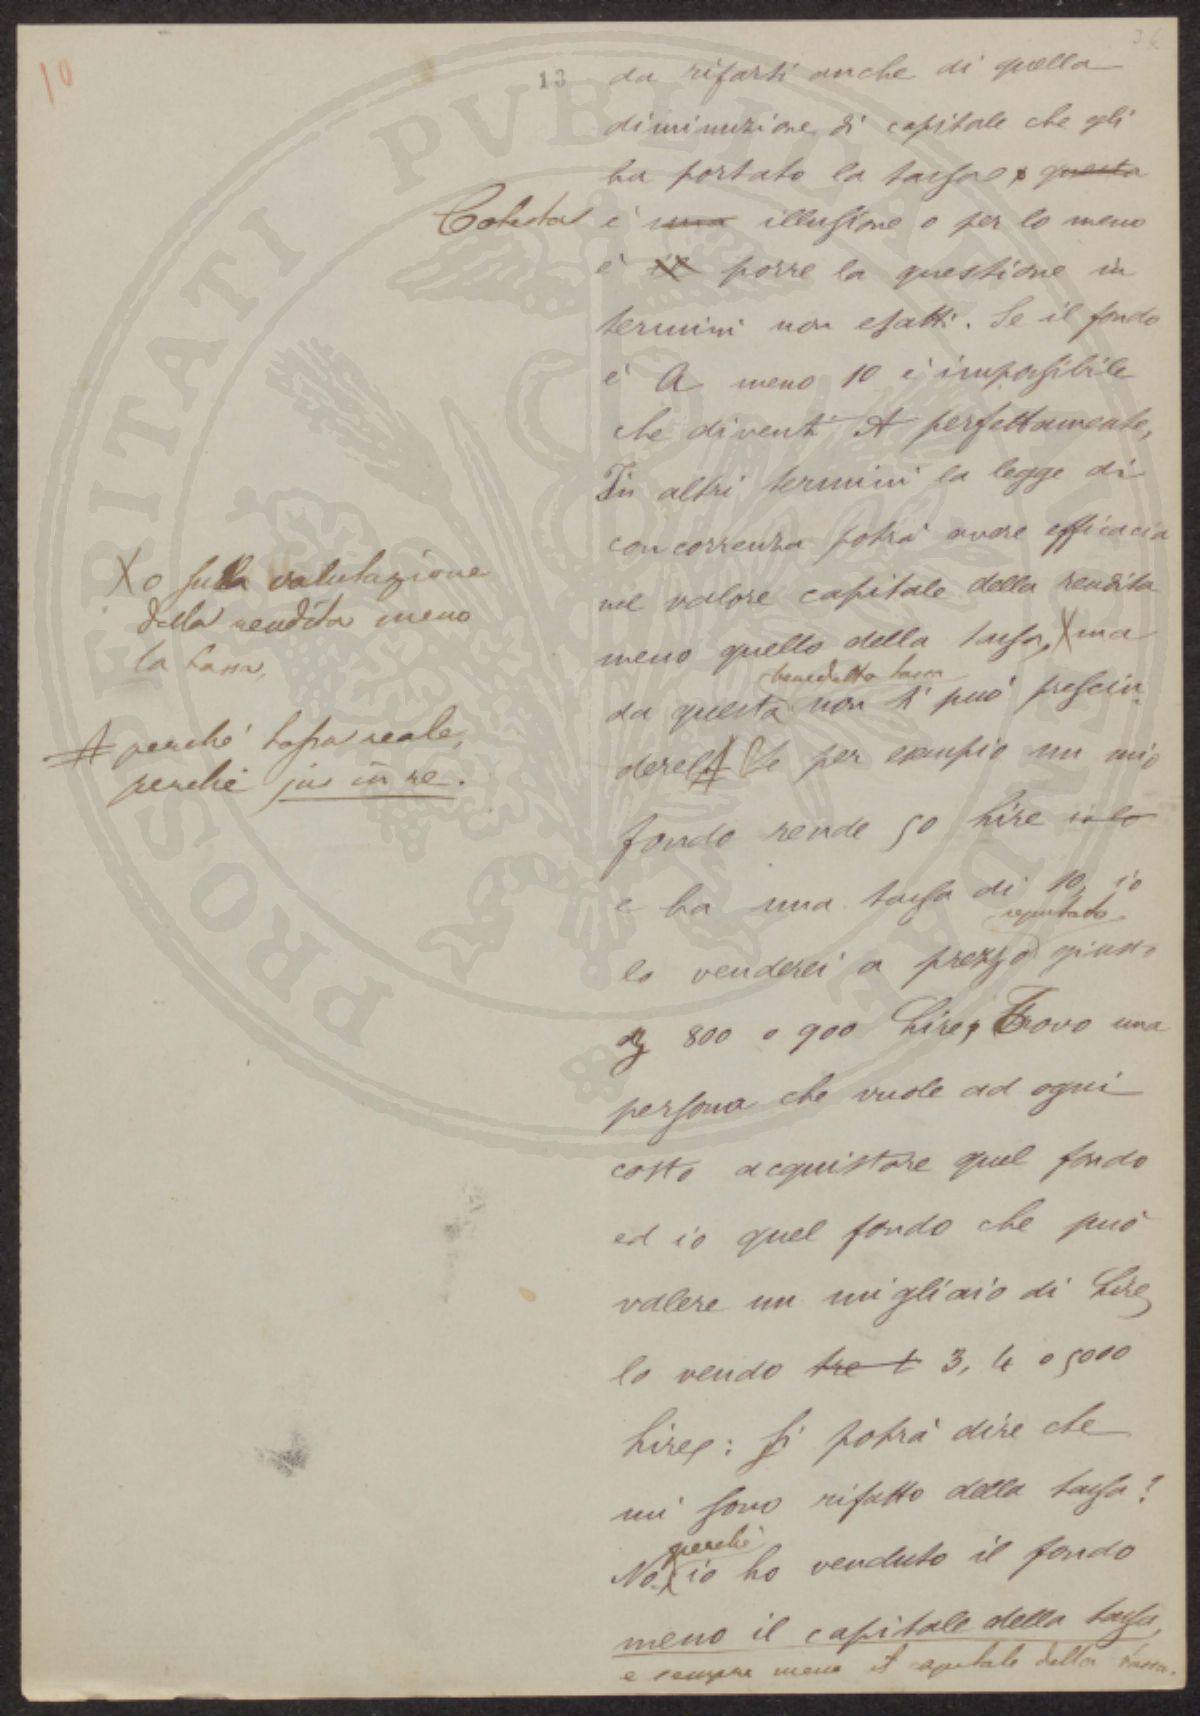 10
13
da rifarsi anche di quella
diminuzione di capitale che gli
ha portato la tassa, questa
Cotesta è una illusione o per lo meno
è il porre la questione in
termini non esatti. Se il fondo
è A meno 10 è impossibile
che diventi A perfettamente,
In altri termini la legge di
concorrenza potrà avere efficacia
nel valore capitale della rendita
meno quello della tassa, X ma
benedetta tassa
da questa non si può prescin
dere. # Se per esempio un mio
fondo rende 50 lire io lo
e ha una tassa di 10, io
reputato
lo venderei a prezzo giusto
800 o 900 Lire, Trovo una
persona che vuole ad ogni
costo acquistare quel fondo
ed io quel fondo che può
valere un migliaio di Lire
lo vendo tre t 3, 4 o 5000
Lire: Si potrà dire che
mi sono rifatto della tassa?
perchè
No, io ho venduto il fondo
meno il capitale della tassa,
e sempre meno il capitale della tassa.
X o sulla valutazione
della rendita meno
la tassa,
# perché tassa reale,
perchè jus in re.
PROSPERITATI PVBLICAE